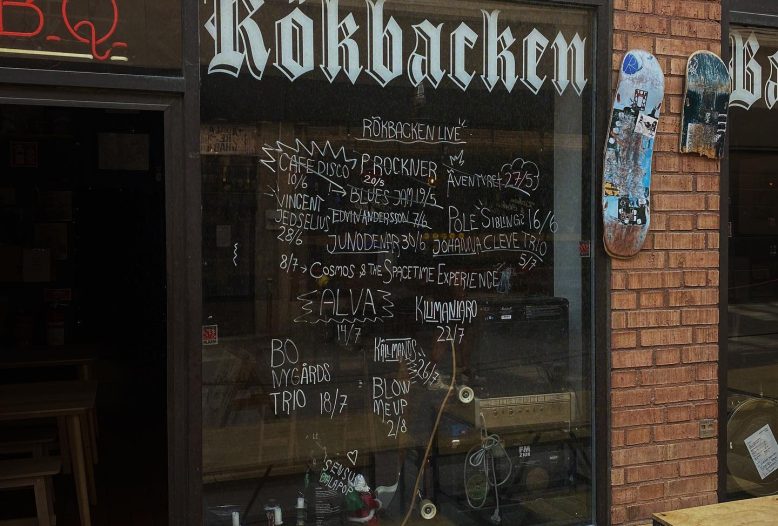 B.Q
Rökbacken
Ba
RÖKBACKEN LIVE
CAFE DISCO
10/6
P. ROCKNER
20/5
ÄVENTYRET 27/5
BLUES JAM 19/5
VINCENT
JEDSELIUS
28/6
EDVIN ANDERSSON 7/6
POLE SIBLINGZ 16/6
JUNODENAR 30/6
JOHANNA CLEVE TRIO
5/7
8/7 → COSMOS & THE SPACETIME EXPERIENCE
ALVA
14/7
KILIMANJARO
22/7
BO
NYGÅRDS
TRIO 18/7
KÄLLMANTIS
26/7
BLOW
ME UP
2/8